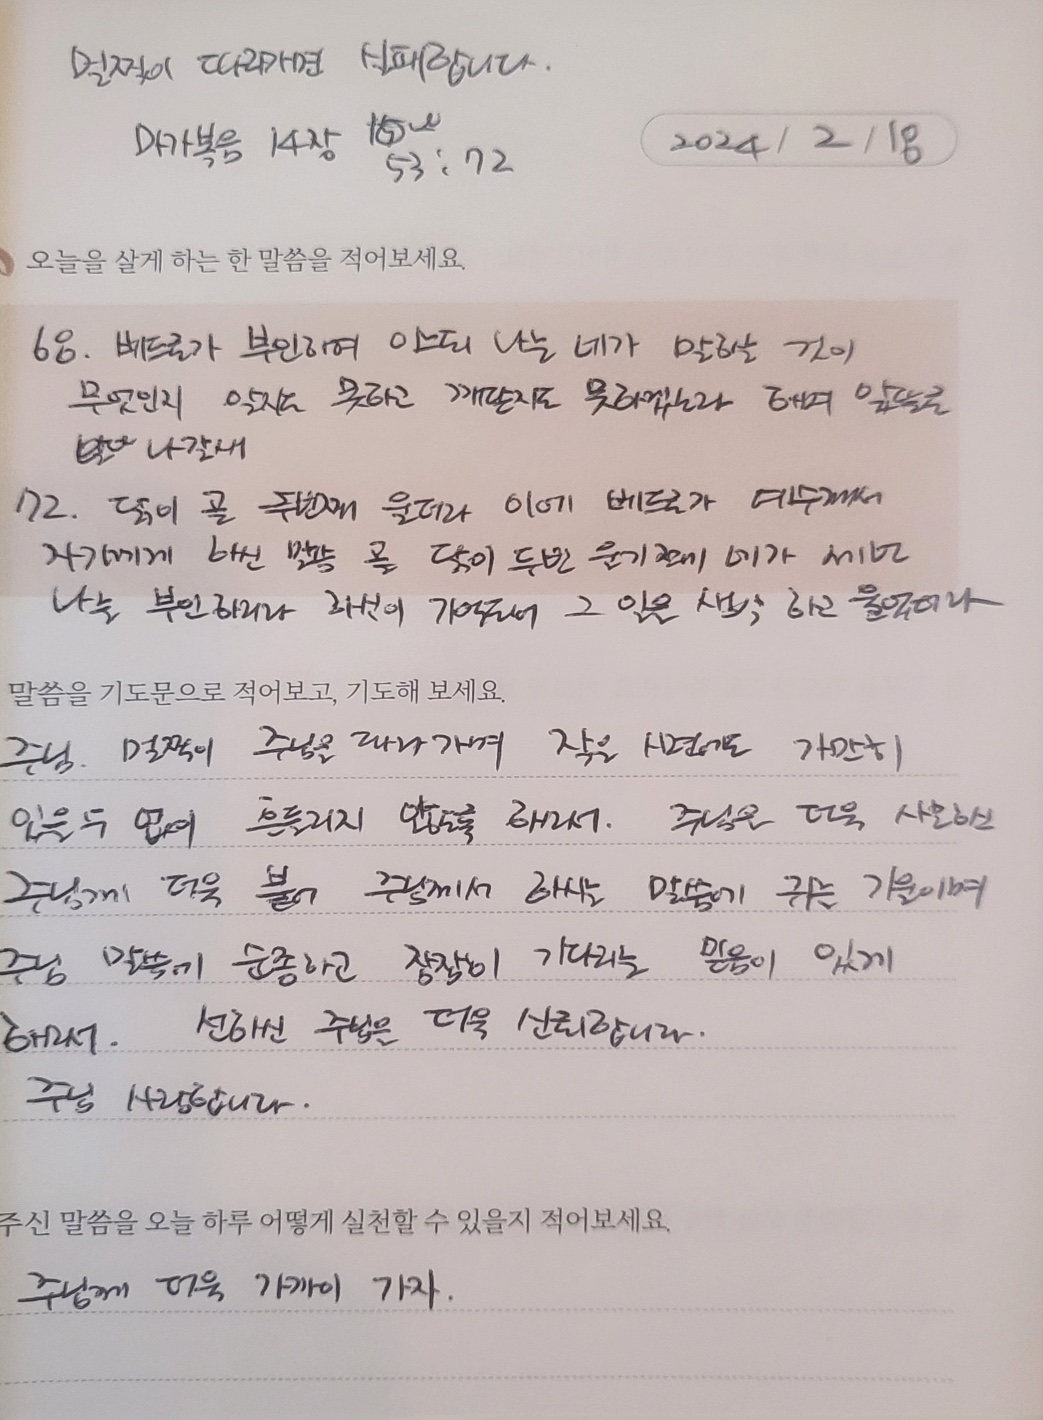 멀찍이 따라가면 실패합니다.
마가복음 14장
53:72
2024/2/18
오늘을 살게 하는 한 말씀을 적어보세요.
68. 베드로가 부인하여 이르되 나는 네가 말하는 것이
무엇인지 알지도 못하고 깨닫지도 못하겠노라 하며 앞뜰로
나갈새
72. 닭이 곧 두번째 울더라 이에 베드로가 예수께서
자기에게 하신 말씀 곧 닭이 두번 울기 전에 네가 세번
나를 부인하리라 하심이 기억되어 그 일을 생각 하고 울었더라
말씀을 기도문으로 적어보고, 기도해 보세요.
주님. 멀찍이 주님을 따라가며 작은 시련에도 가만히
있을 수 없이 흔들리지 않도록 해주서. 주님을 더욱 사모하는
주님께 더욱 붙어 주님께서 하시는 말씀에 귀를 기울이며
주님 말씀에 순종하고 잠잠히 기다리는 믿음이 있게
해주서. 선하신 주님을 더욱 신뢰합니다.
주님 사랑합니다.
주신 말씀을 오늘 하루 어떻게 실천할 수 있을지 적어보세요.
주님께 더욱 가까이 가자.